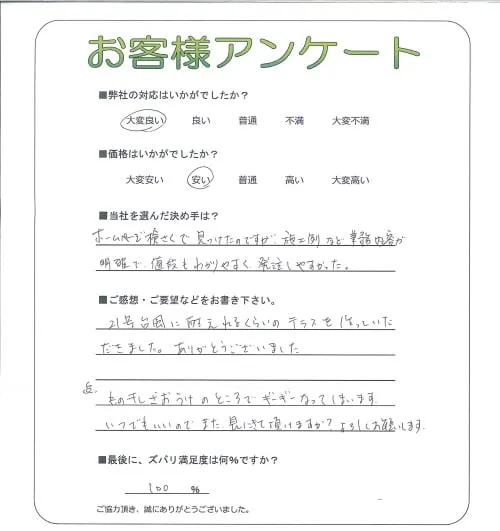 お客様アンケート
■弊社の対応はいかがでしたか？
大変良い 良い 普通 不満 大変不満
■価格はいかがでしたか？
大変安い 安い 普通 高い 大変高い
■当社を選んだ決め手は？
ホームページ検さくで見つけたのですが、施工例など業務内容が
明確で、値段もわかりやすく発注しやすかった。
■ご感想・ご要望などをお書き下さい。
21号台風に耐えれるくらいのテラスを作っていた
だきました。ありがとうございました
ものほしざおうけのところでギーギーなってしまいます
いつでもいいのでまた見にきて頂けますか？よろしくお願いします。
■最後に、ズバリ満足度は何%ですか？
100 %
ご協力頂き、誠にありがとうございました。